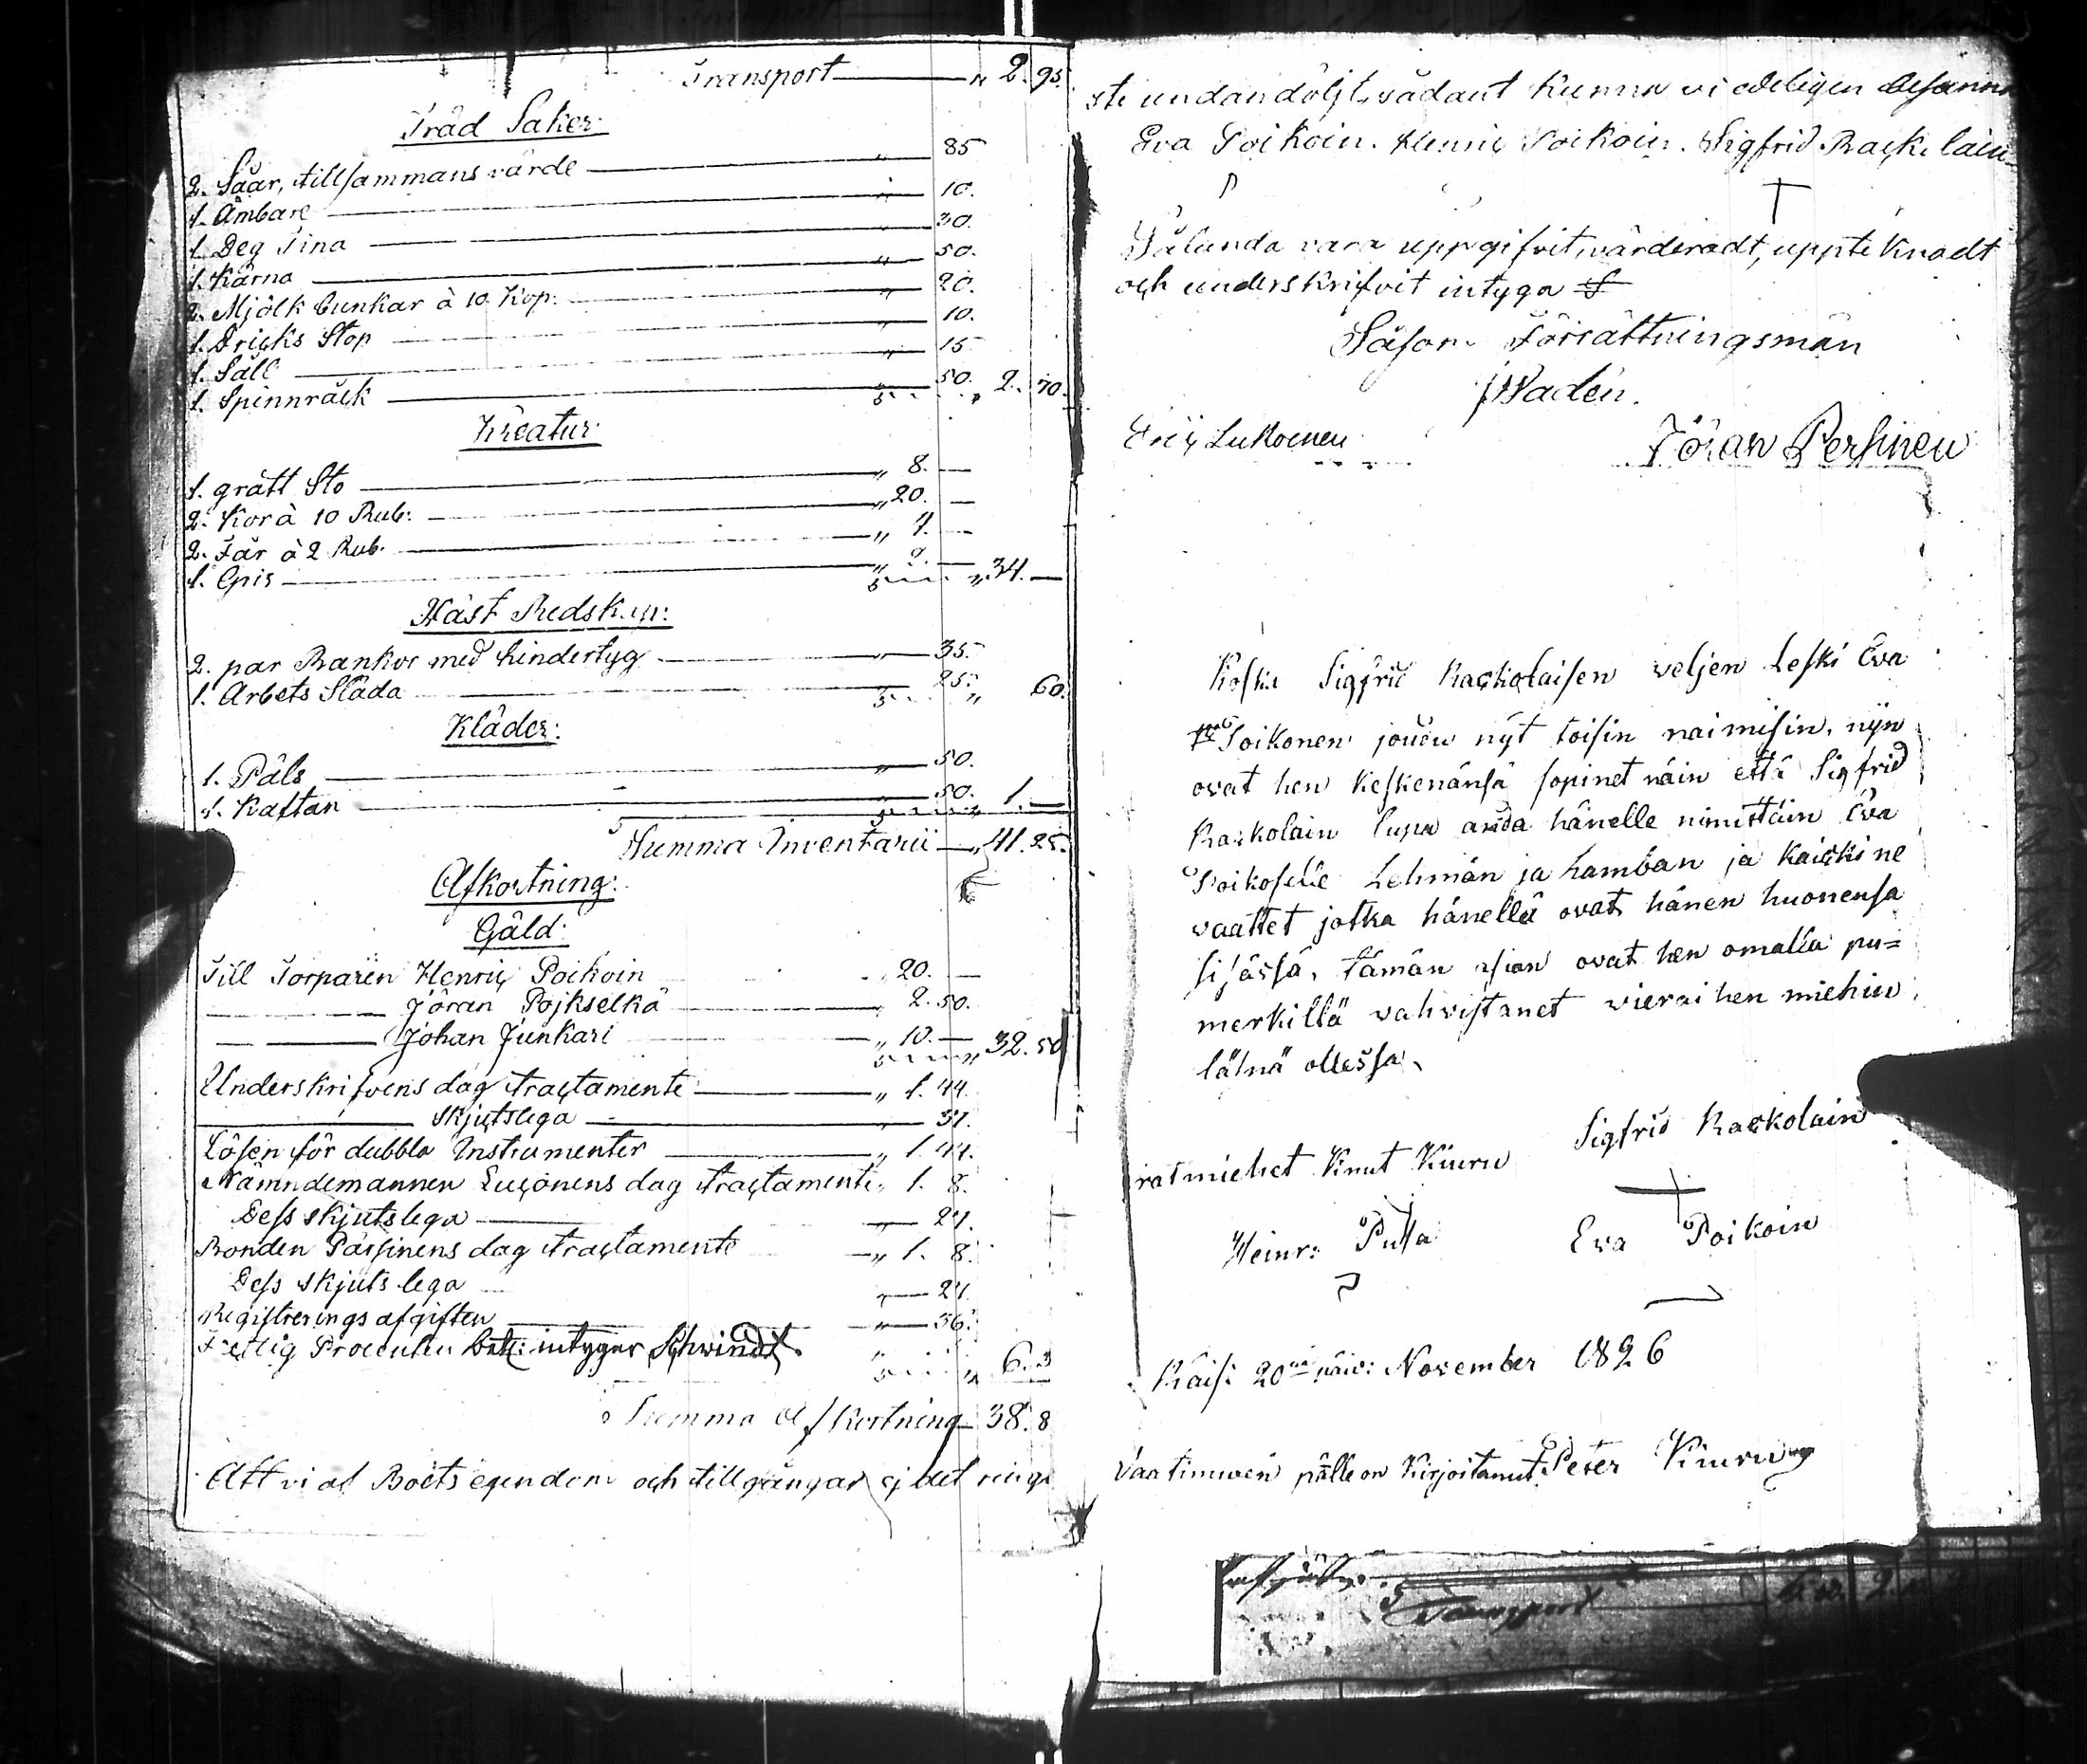 Transport — „ 2. 95.
Träd Saker:
2. Såar, tillsammans värde — „ — 85
1. Ämbare — „ — 10.
1. Deg Tina — „ — 30.
1. Kärna — „ — 50.
2. Mjölk bunkar à 10 Kop: — „ — 20.
1. Dricks Stop — „ — 10.
1. Såll — „ — 15
1. Spinnråck — „ — 50. „ 2. 70.
Kreatur:
1. grått Sto — „ 8. —
2. Kor à 10 Rub: — „ 20. —
2. Får à 2 Rub. — „ 4. —
1. Gris — „ 2. — „ 34. —
Häst Redskap:
2. par Rankor med hindertyg — „ — 35.
1. Arbets Släda — 25. „ 60.
Kläder:
1. Päls — „ — 50.
1. Kaftan — „ — 50. „ 1. —
Summa Inventarii — „ 41. 25.
Afkortning:
Gäld:
Till Torparen Henric Poikoin „ 20. —
— Jöran Pojkselkä — „ 2. 50.
— Johan Junkari — „ 10. — „ 32. 50
Underskrifvens dag tractamente — „ 1. 44.
— skjutslega — „ — 37.
Lösen för dubbla Instrumenter — „ 1. 44.
Nämndemannen Lucoinens dag tractamente „ 1. 8.
Dess skjutslega — „ — 24.
Bonden Pärsinens dag tractamente — „ 1. 8.
Dess skjuts lega — „ — 24.
Registrerings afgiften — „ — 36.
Fattig Procenten bet: intygar Schwindt. „ „ 6.
Summa Afkortning — 38. 8
Att vi af Boets egendom och tillgångar ej det ringa
ste undandöljt, sådant kunna vi edeligen besanna
Eva Poikoin. Henric Poikoin. Sigfrid Rackolain
Sålunda vara uppgifvit, värderadt, upptecknadt
och underskrifvit intyga
Såsom Förrättningsmän
Wadén.
Eric Lukoinen Jöran Persinen
Koska Sigfrid Rackolaisen veljen Leski Eva
Poikonen jouðu nyt toisin naimisin, nijn
ovat hen keskenänsä sopinet näin että Sigfrid
Rackolain lupa anda hänelle nimittäin Eva
Poikoselle Lehmän ja Lamban ja kaickine
vaattet jotka hänellä ovat hänen huonensa
sisässä, tämän asian ovat hen omalla pu=
merkillä vahvistanet vieraihen miehin
läsnä ollessa,
Sigfrid Rackolain
ratmiehet Knut Kiuru
Heinr: Pulla Eva Poikoin
Räis: 20 päiv: November 1826
Vaatimuxen pälle on Kirjoitanut Peter Kiuru
Transport